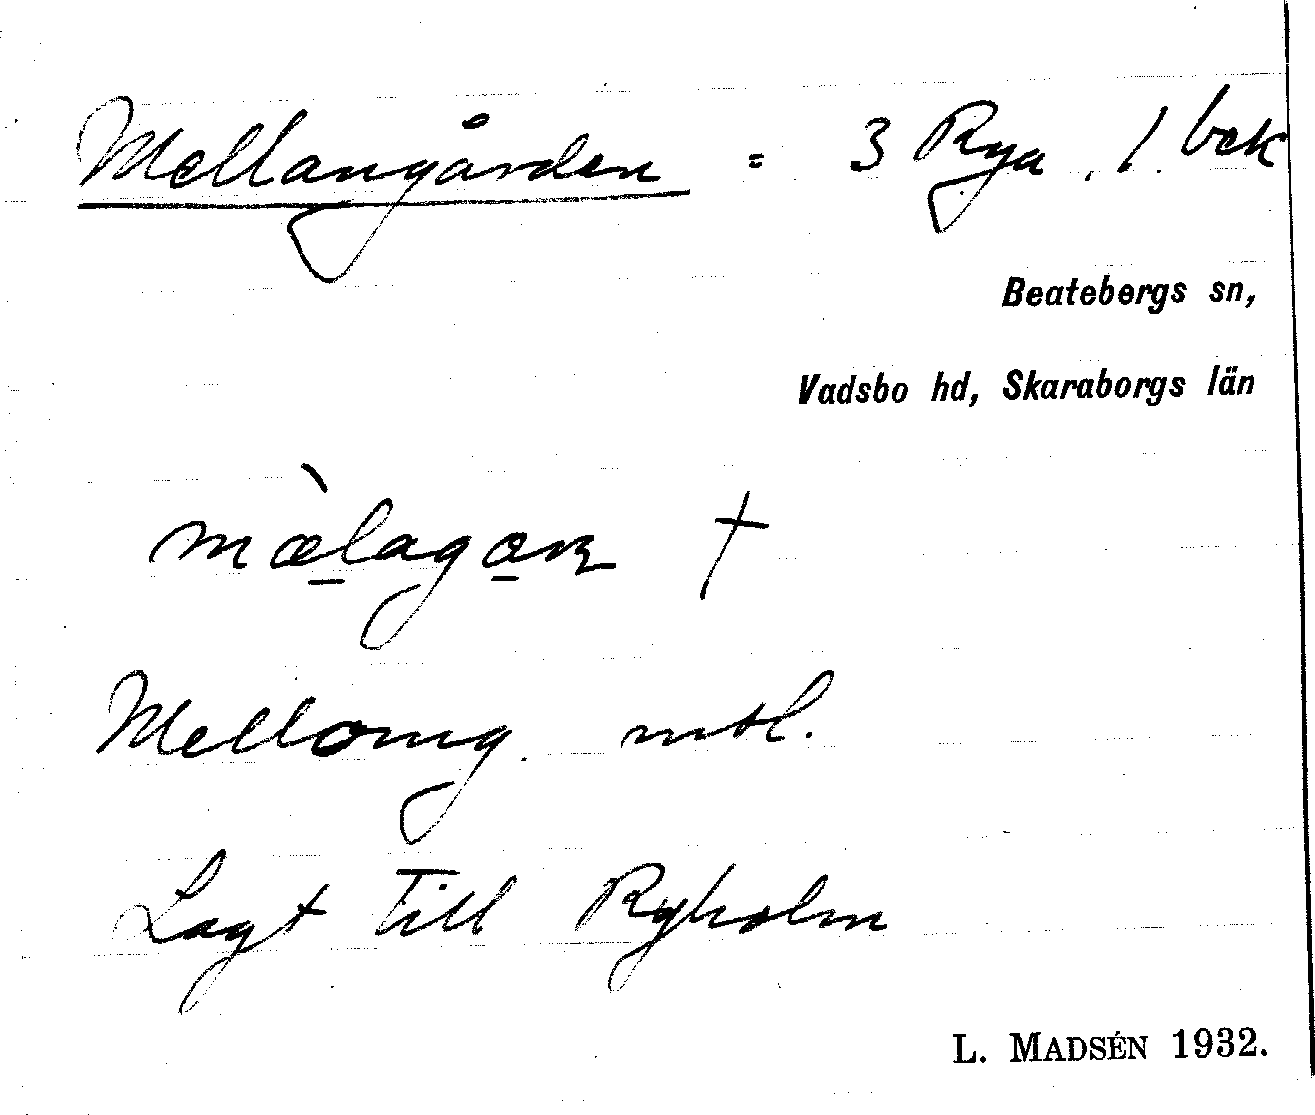 Mellangården = 3 Rya, 1. bek
Beatebergs sn,
Vadsbo hd, Skaraborgs län
mæ̀lagaɷ †
Mellomg. mtl.
Lagt till Ryholm
L. MADSÉN 1932.